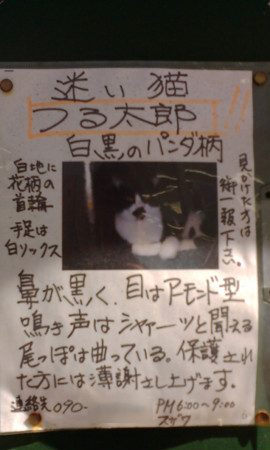 迷い猫
つる太郎!!
白、黒のパンダ柄
白地に
花柄の
首輪
手足は
白ソックス
見かけた方は
御一報下さい。
鼻が黒く、目はアモンド型
鳴き声はシャーッと聞える
尾っぽは曲っている。保護され
た方には薄謝さし上げます。
連絡先 090-
PM6:00〜9:00
スザワ